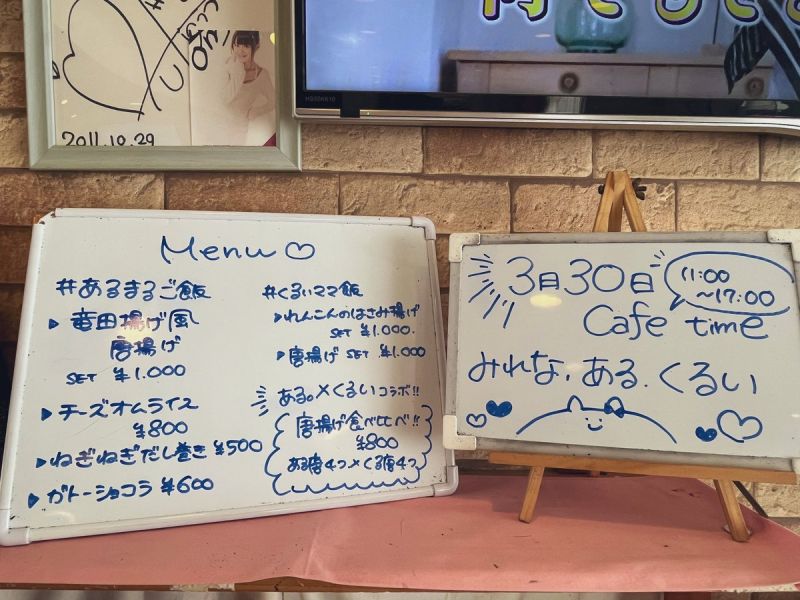 2011.10.29
Menu♡
#あるまるご飯
▶竜田揚げ風
唐揚げ
SET ¥1.000
▶チーズオムライス
¥800
▶ねぎねぎだし巻き ¥500
▶ガトーショコラ ¥600
#くるいママ飯
▶れんこんのはさみ揚げ
SET ¥1.000.
▶唐揚げ SET ¥1.000
ある。×くるいコラボ!!
唐揚げ食べ比べ!!
¥800
ある唐4つ×くる唐4つ
3月30日
11:00
~17:00
Cafe time
みれな,ある.くるい